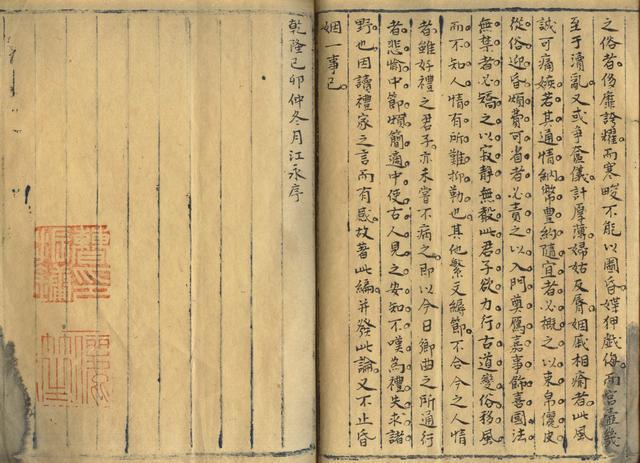 之俗者侈靡誇耀而寒畯不能以圖昏媟狎戲侮而宮壼幾
至于瀆亂又或爭奩儀計厚薄婦姑反脣姻戚相瘉者此風
誠可痛嫉若其通情納幣豐約隨宜者必概之以束帛儷皮
從俗迎昏煩費可省者必責之以入門奠鴈嘉事飾喜國法
無禁者必矯之以寂靜無聲此君子欲力行古道變俗移風
而不知人情有所難抑勒也其他繁文縟節不合今之人情
者雖好禮之君子亦未嘗不病之即以今日鄉曲之所通行
者悲愉中節煩簡適中使古人見之安知不嘆為禮失求諸
野也因讀禮家之言而有感故著此編并發此論又不止昏
姻一事已
乾隆己卯仲冬月江永序